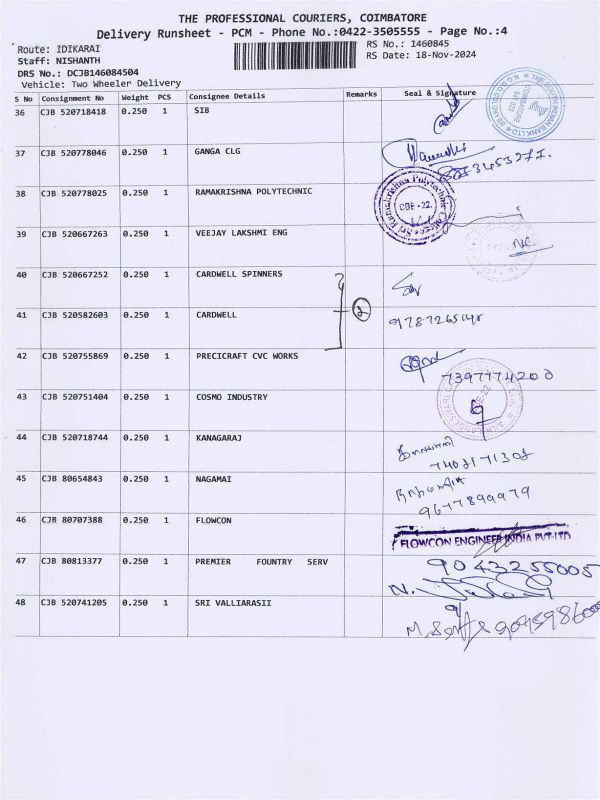 THE PROFESSIONAL COURIERS, COIMBATORE
Delivery Runsheet - PCM - Phone No.:0422-3505555 - Page No.:4
Route: IDIKARAI
RS No.: 1460845
Staff: NISHANTH
RS Date: 18-Nov-2024
DRS No.: DCJB146084504
Vehicle: Two Wheeler Delivery
S No Consignment No Weight PCS Consignee Details Remarks Seal & Signature
36 CJB 520718418 0.250 1 SIB
37 CJB 520778046 0.250 1 GANGA CLG
38 CJB 520778025 0.250 1 RAMAKRISHNA POLYTECHNIC
CBE-22.
39 CJB 520667263 0.250 1 VEEJAY LAKSHMI ENG
40 CJB 520667252 0.250 1 CARDWELL SPINNERS
2
41 CJB 520582603 0.250 1 CARDWELL
42 CJB 520755869 0.250 1 PRECICRAFT CVC WORKS
7397774200
43 CJB 520751404 0.250 1 COSMO INDUSTRY
44 CJB 520718744 0.250 1 KANAGARAJ
45 CJB 80654843 0.250 1 NAGAMAI
9677899979
46 CJB 80707388 0.250 1 FLOWCON
FLOWCON ENGINEER INDIA PVT-LTD
47 CJB 80813377 0.250 1 PREMIER FOUNTRY SERV
9043255005
48 CJB 520741205 0.250 1 SRI VALLIARASII